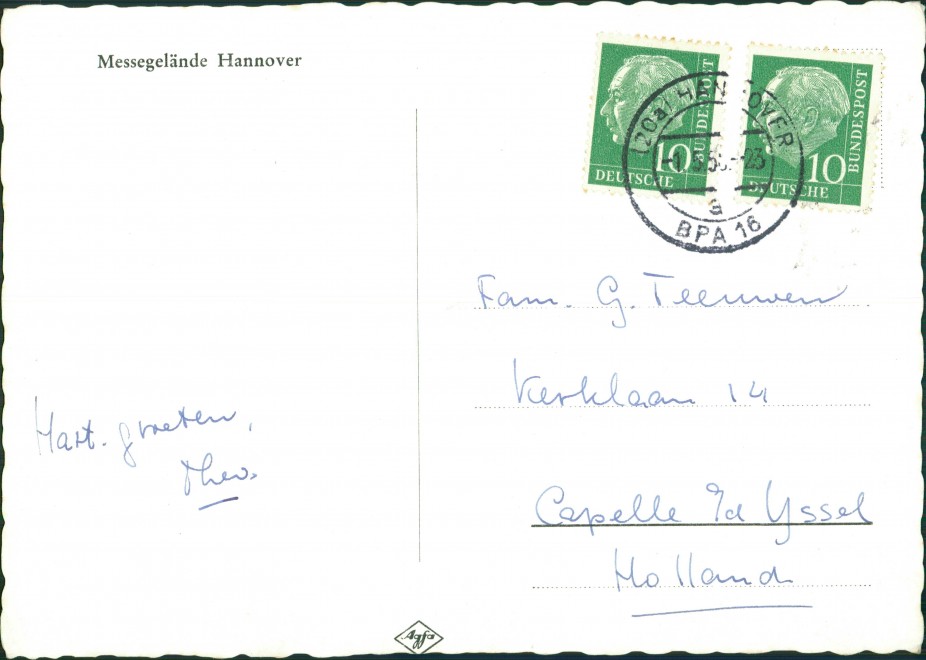 Messegelände Hannover
BUNDESPOST
10
DEUTSCHE
BUNDESPOST
10
DEUTSCHE
(20a) HANNOVER
a
BPA 16
Fam. G. Teeuwen
Kerklaan 14
Capelle a/d Yssel
Holland
Hart. groeten,
Theo.
Agfa